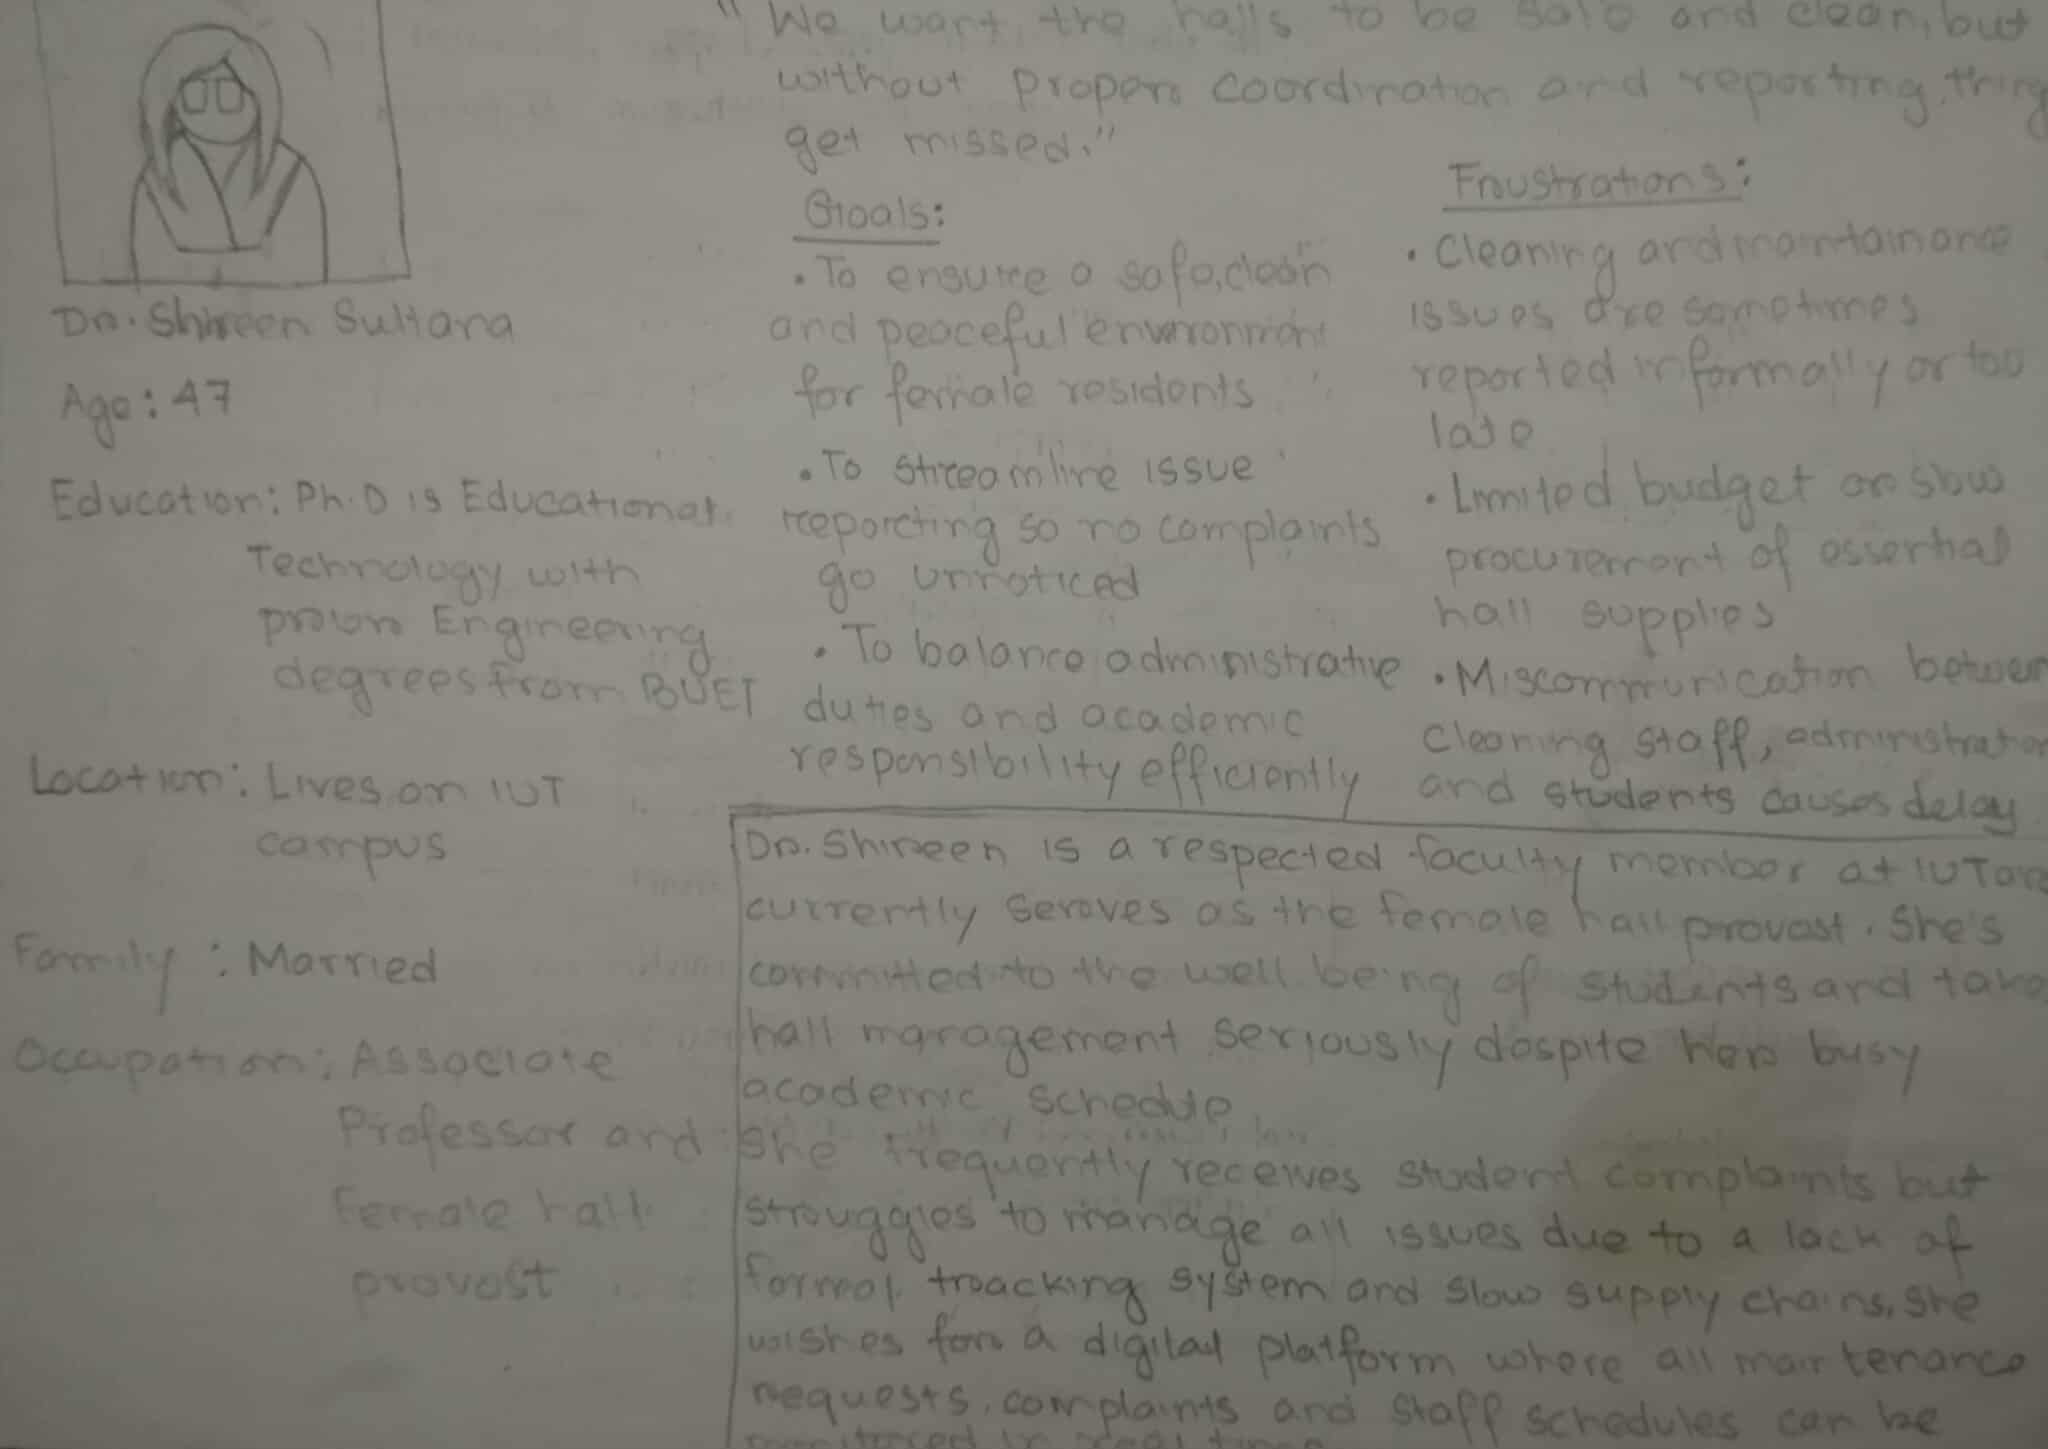 "We want the halls to be safe and clean, but
without proper coordination and reporting, thing
get missed."
Dr. Shireen Sultana
Age: 47
Education: Ph.D is Educational
Technology with
prior Engineering
degrees from BUET
Location: Lives on IUT
campus
Family: Married
Occupation: Associate
Professor and
Female hall
provost
Goals:
• To ensure a safe, clean
and peaceful environment
for female residents
• To streamline issue
reporting so no complaints
go unnoticed
• To balance administrative
duties and academic
responsibility efficiently
Frustrations:
• Cleaning and maintainance
issues are sometimes
reported informally or too
late
• Limited budget or slow
procurement of essential
hall supplies
• Miscommunication between
cleaning staff, administration
and students causes delay
Dr. Shireen is a respected faculty member at IUT and
currently serves as the female hall provost. She's
committed to the well being of students and take
hall management seriously despite her busy
academic schedule
She frequently receives student complaints but
struggles to manage all issues due to a lack of
formal tracking system and slow supply chains, she
wishes for a digital platform where all maintenance
requests, complaints and staff schedules can be